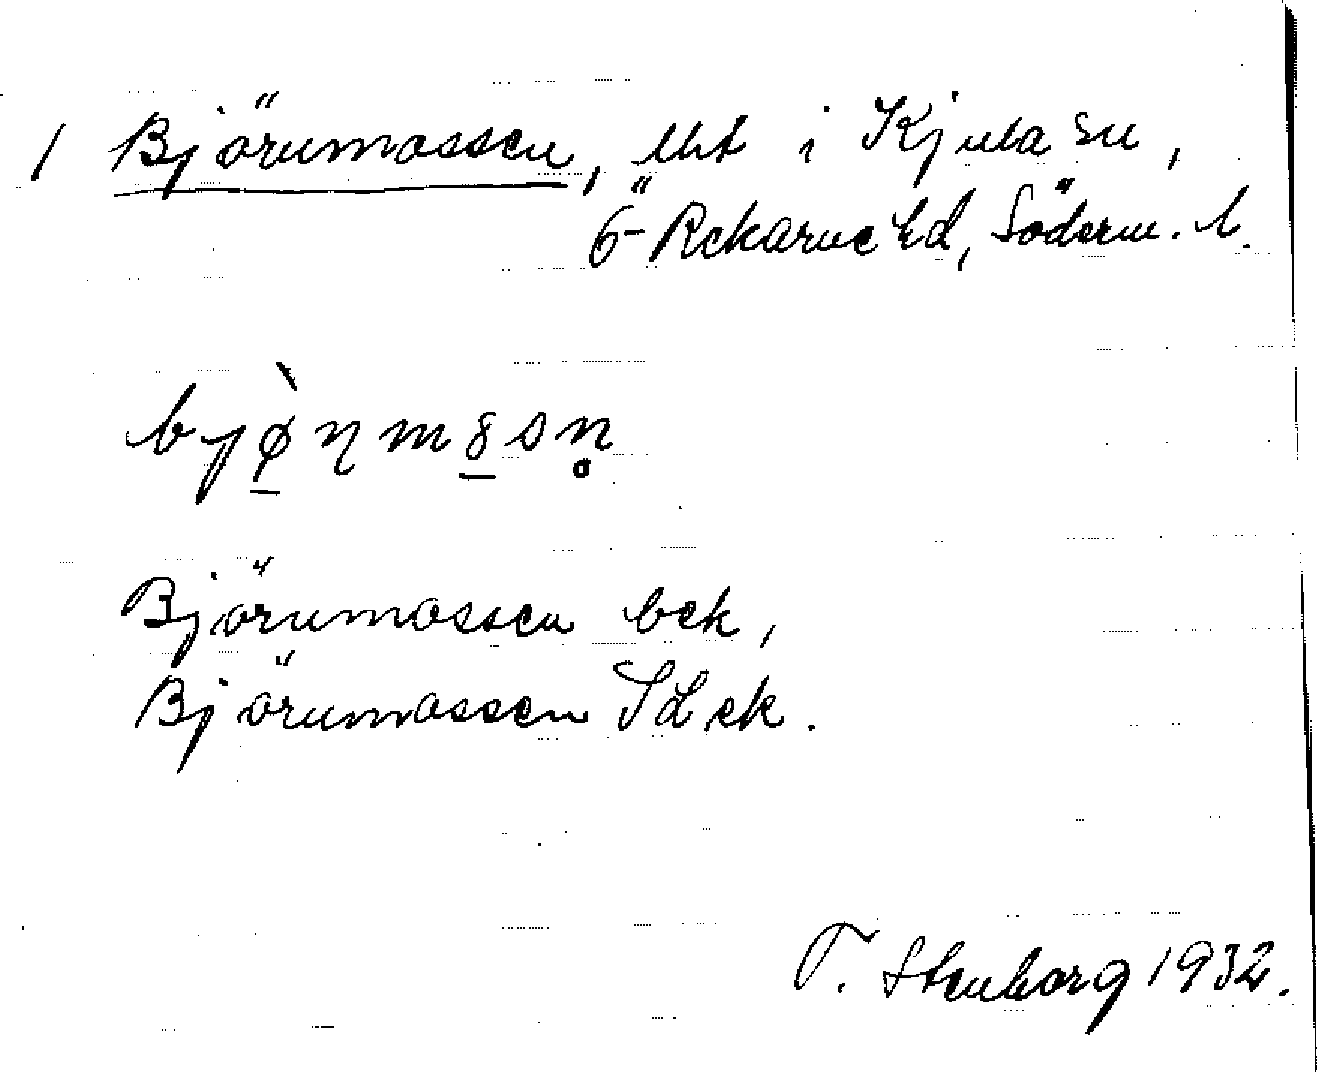 1 Björnmossen, lht i Kjula sn,
Ö-Rekarne hd, Söderm. l.
bjø̠̀ɳm8̠sn̥
Björnmossen bek,
Björnmossen JLek.
T. Stenborg 1932.